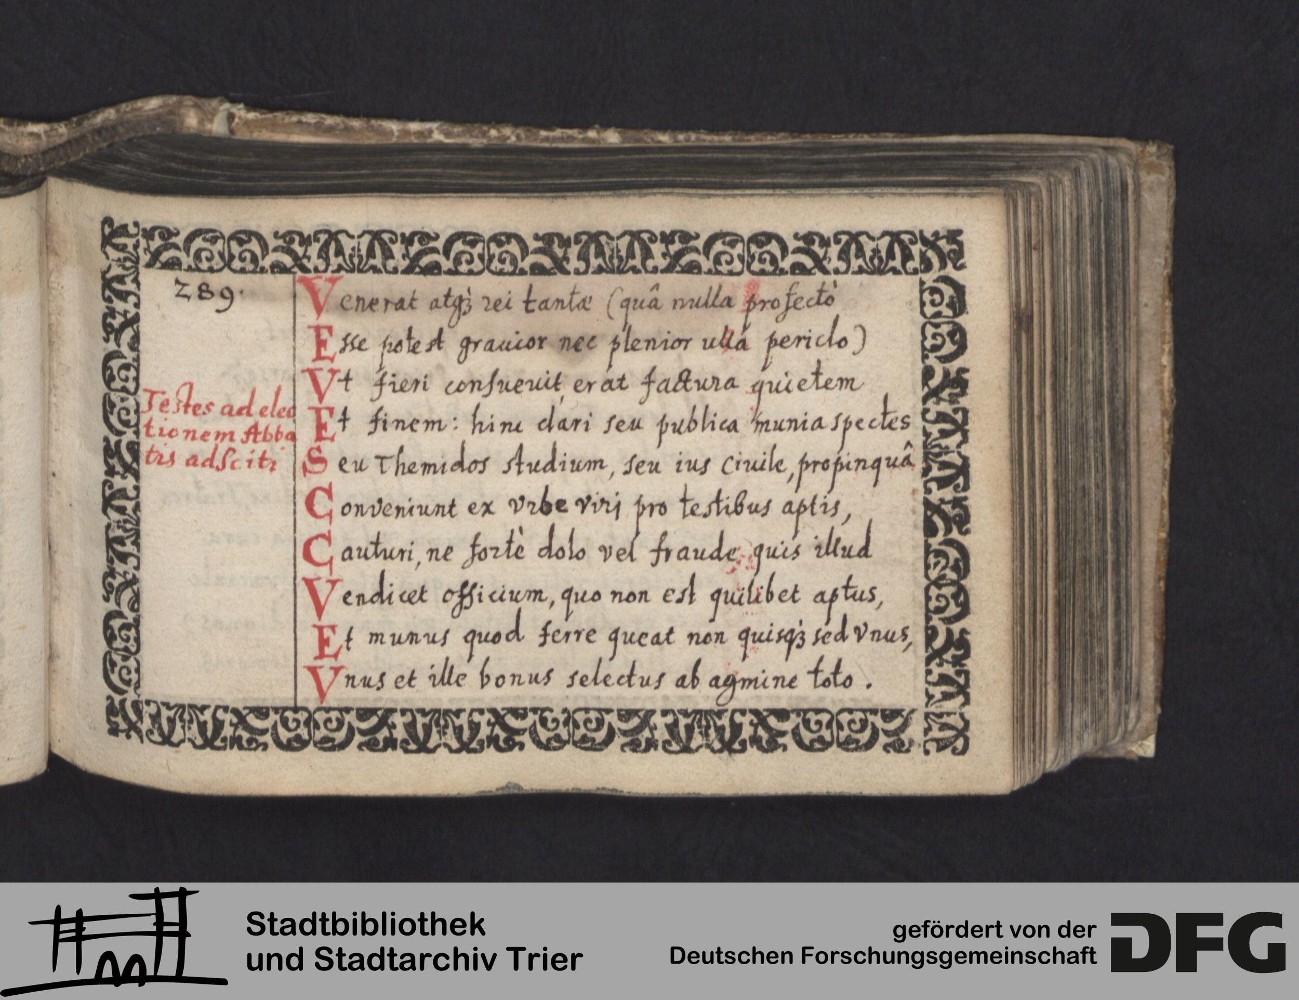 289.
Testes ad elec
tionem Abba
tis adsciti
Venerat atqꝫ rei tantæ (quâ nulla profectò
Esse potest grauior nec plenior ulla periclo)
Vt fieri consueuit, erat factura quietem
Et finem: hinc clari seu publica munia spectes
Seu Themidos studium, seu ius civile, propinquâ
Conveniunt ex vrbe virj pro testibus aptis,
Cauturi, ne fortè dolo vel fraude quis illud
Vendicet officium, quo non est quilibet aptus,
Et munus quod ferre queat non quisqꝫ sed vnus,
Vnus et ille bonus selectus ab agmine toto.
Stadtbibliothek
und Stadtarchiv Trier
gefördert von der
Deutschen Forschungsgemeinschaft
DFG